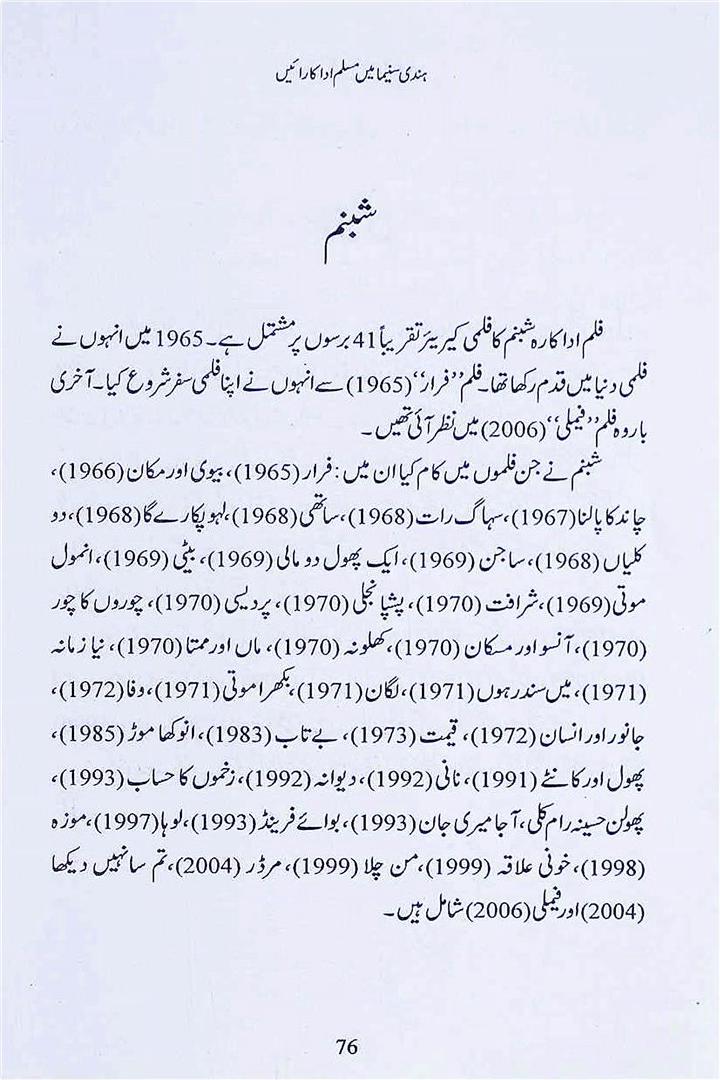 ہندی سنیما میں مسلم اداکارائیں
شبنم
فلم اداکارہ شبنم کا فلمی کیریئر تقریباً 41 برسوں پر مشتمل ہے۔ 1965 میں انہوں نے
فلمی دنیا میں قدم رکھا تھا۔ فلم ”فرار“ (1965) سے انہوں نے اپنا فلمی سفر شروع کیا۔ آخری
بار وہ فلم ”فیملی“ (2006) میں نظر آئی تھیں۔
شبنم نے جن فلموں میں کام کیا ان میں: فرار (1965)، بیوی اور مکان (1966)،
چاند کا پالنا (1967)، سہاگ رات (1968)، ساتھی (1968)، لہو پکارے گا (1968)، دو
کلیاں (1968)، ساجن (1969)، ایک پھول دو مالی (1969)، بیٹی (1969)، انمول
موتی (1969)، شرافت (1970)، پشپانجلی (1970)، پردیسی (1970)، چوروں کا چور
(1970)، آنسو اور مسکان (1970)، کھلونہ (1970)، ماں اور ممتا (1970)، نیا زمانہ
(1971)، میں سندر ہوں (1971)، لگان (1971)، بکھرا موتی (1971)، وفا (1972)،
جانور اور انسان (1972)، قیمت (1973)، بے تاب (1983)، انوکھا موڑ (1985)،
پھول اور کانٹے (1991)، نانی (1992)، دیوانہ (1992)، زخموں کا حساب (1993)،
پھولن حسینہ رام کلی، آجا میری جان (1993)، بوائے فرینڈ (1993)، لوہا (1997)، موزہ
(1998)، خونی علاقہ (1999)، من چلا (1999)، مرڈر (2004)، تم سا نہیں دیکھا
(2004) اور فیملی (2006) شامل ہیں۔
76